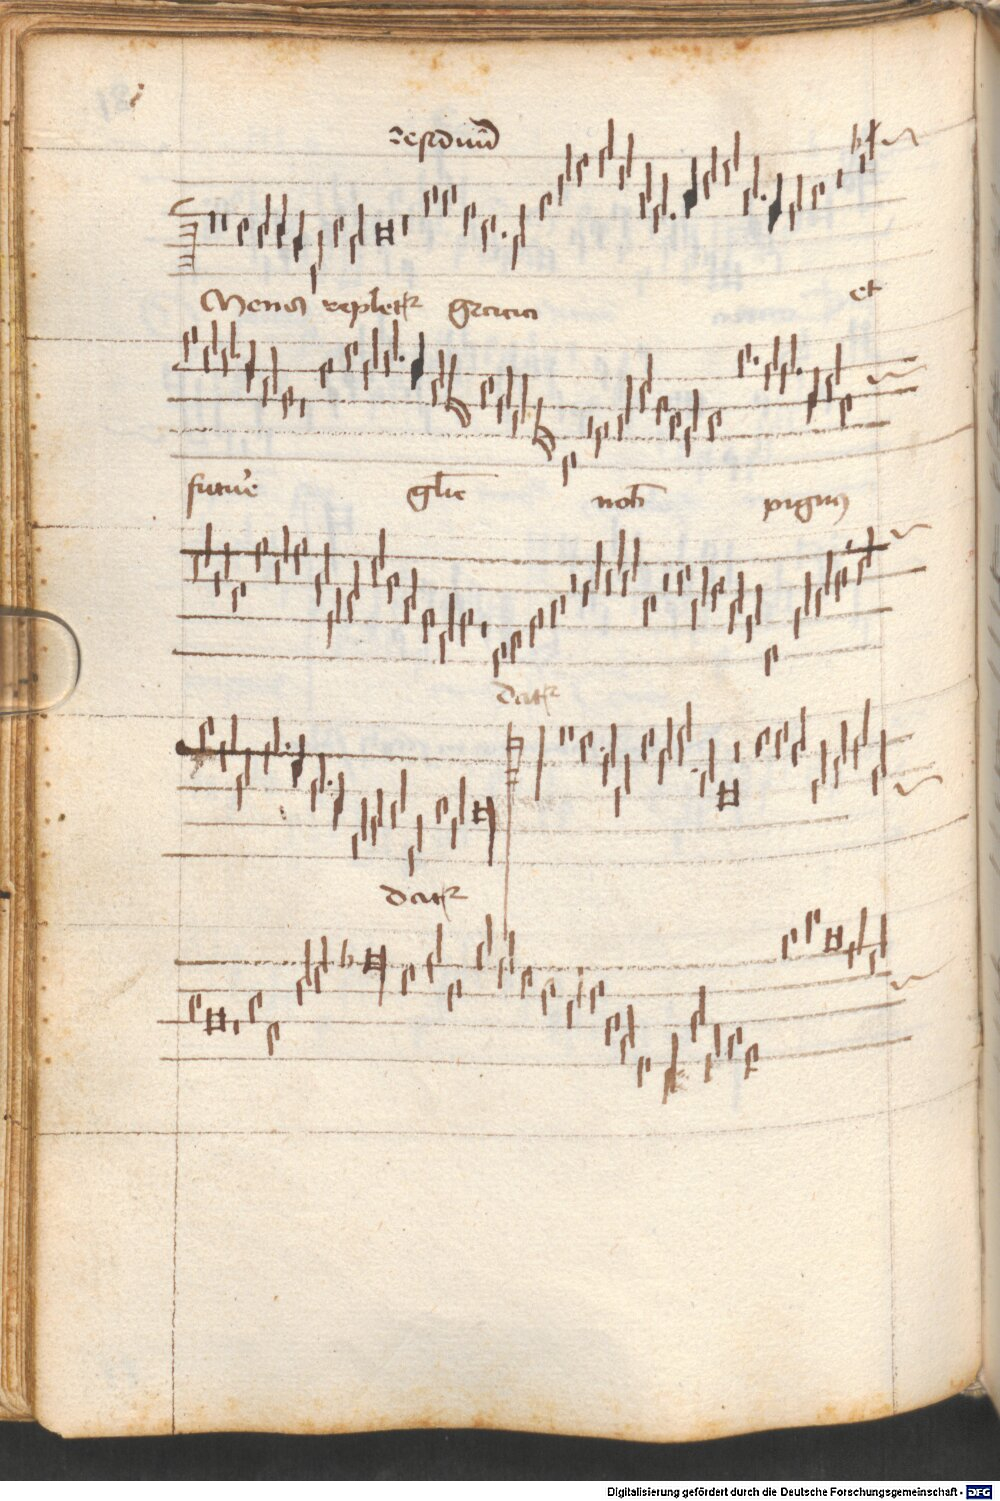 Mens repletr gracia et
future glie nob pignus
datr
datr
Digitalisierung gefördert durch die Deutsche Forschungsgemeinschaft - DFG